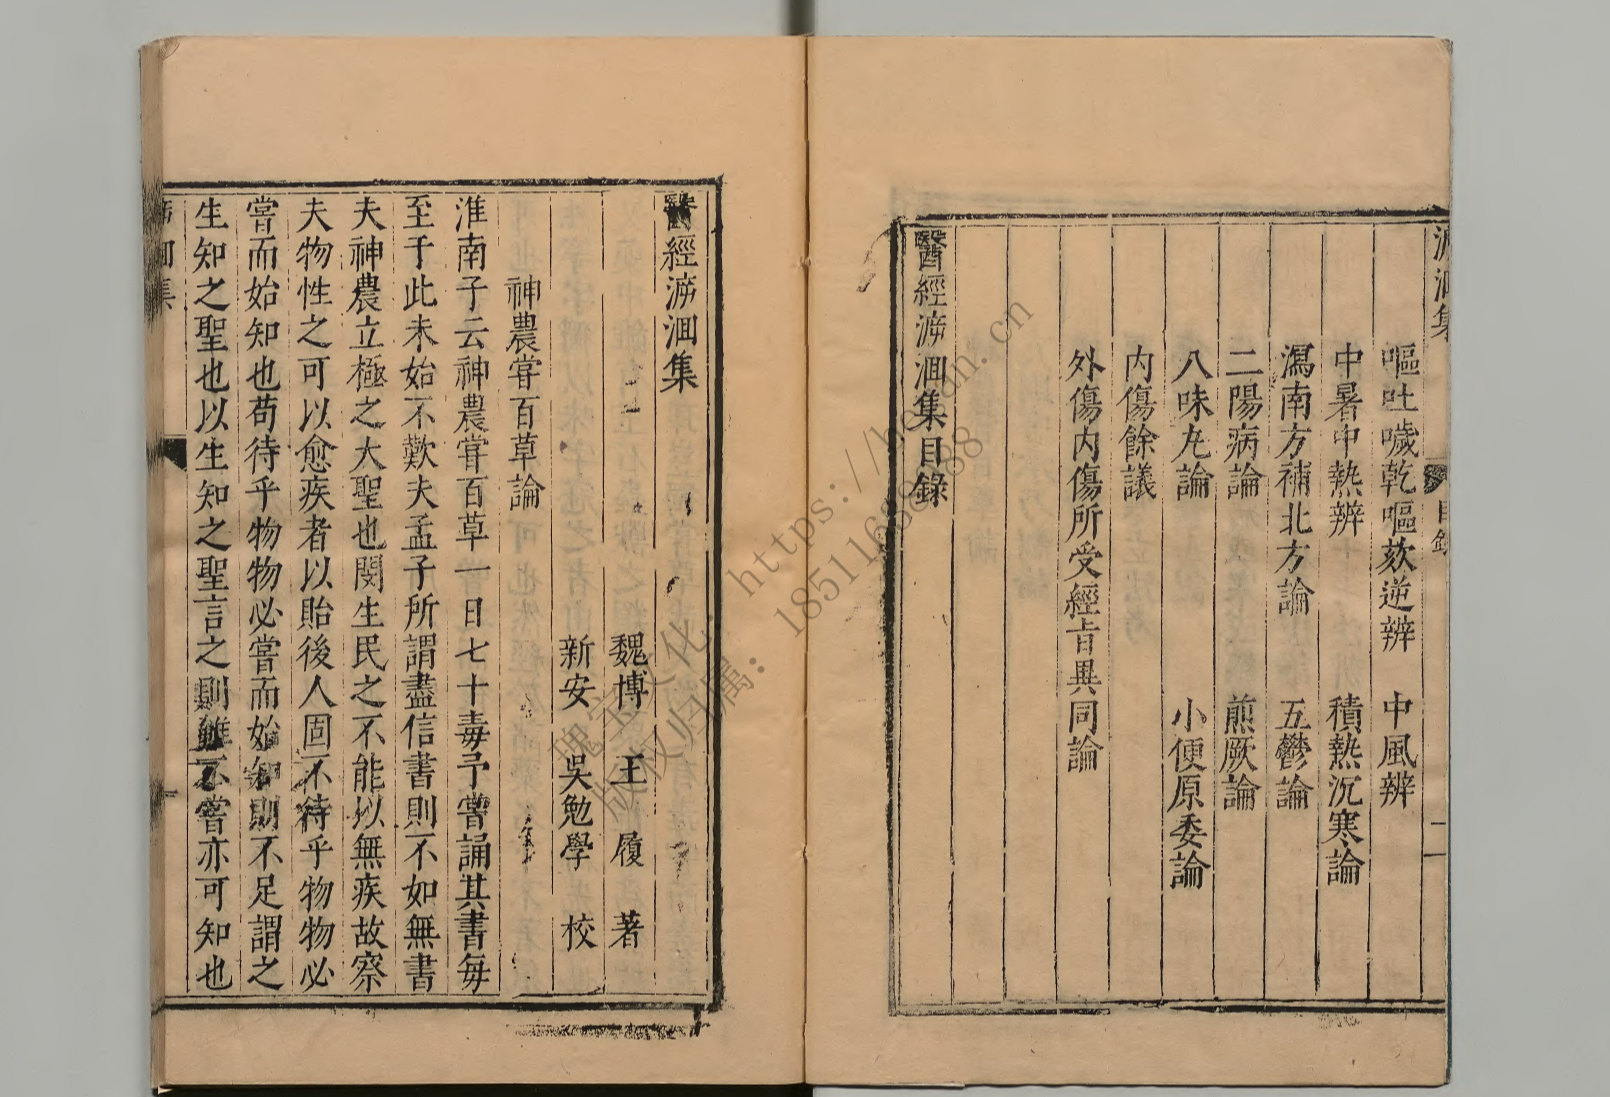 嘔吐噦乾嘔欬逆辨　中風辨
中暑中熱辨　積熱沉寒論
瀉南方補北方論　五鬱論
二陽病論　煎厥論
八味丸論　小便原委論
内傷餘議
外傷内傷所受經旨異同論
醫經泝洄集目錄
醫經泝洄集
魏博　王　履　著
新安　吳勉學　校
神農嘗百草論
淮南子云神農嘗百草一日七十毒予嘗誦其書每
至于此未始不歎夫孟子所謂盡信書則不如無書
夫神農立極之大聖也閔生民之不能以無疾故察
夫物性之可以愈疾者以貽後人固不待乎物物必
嘗而始知也苟待乎物物必嘗而始知則不足謂之
生知之聖也以生知之聖言之則雖不嘗亦可知也